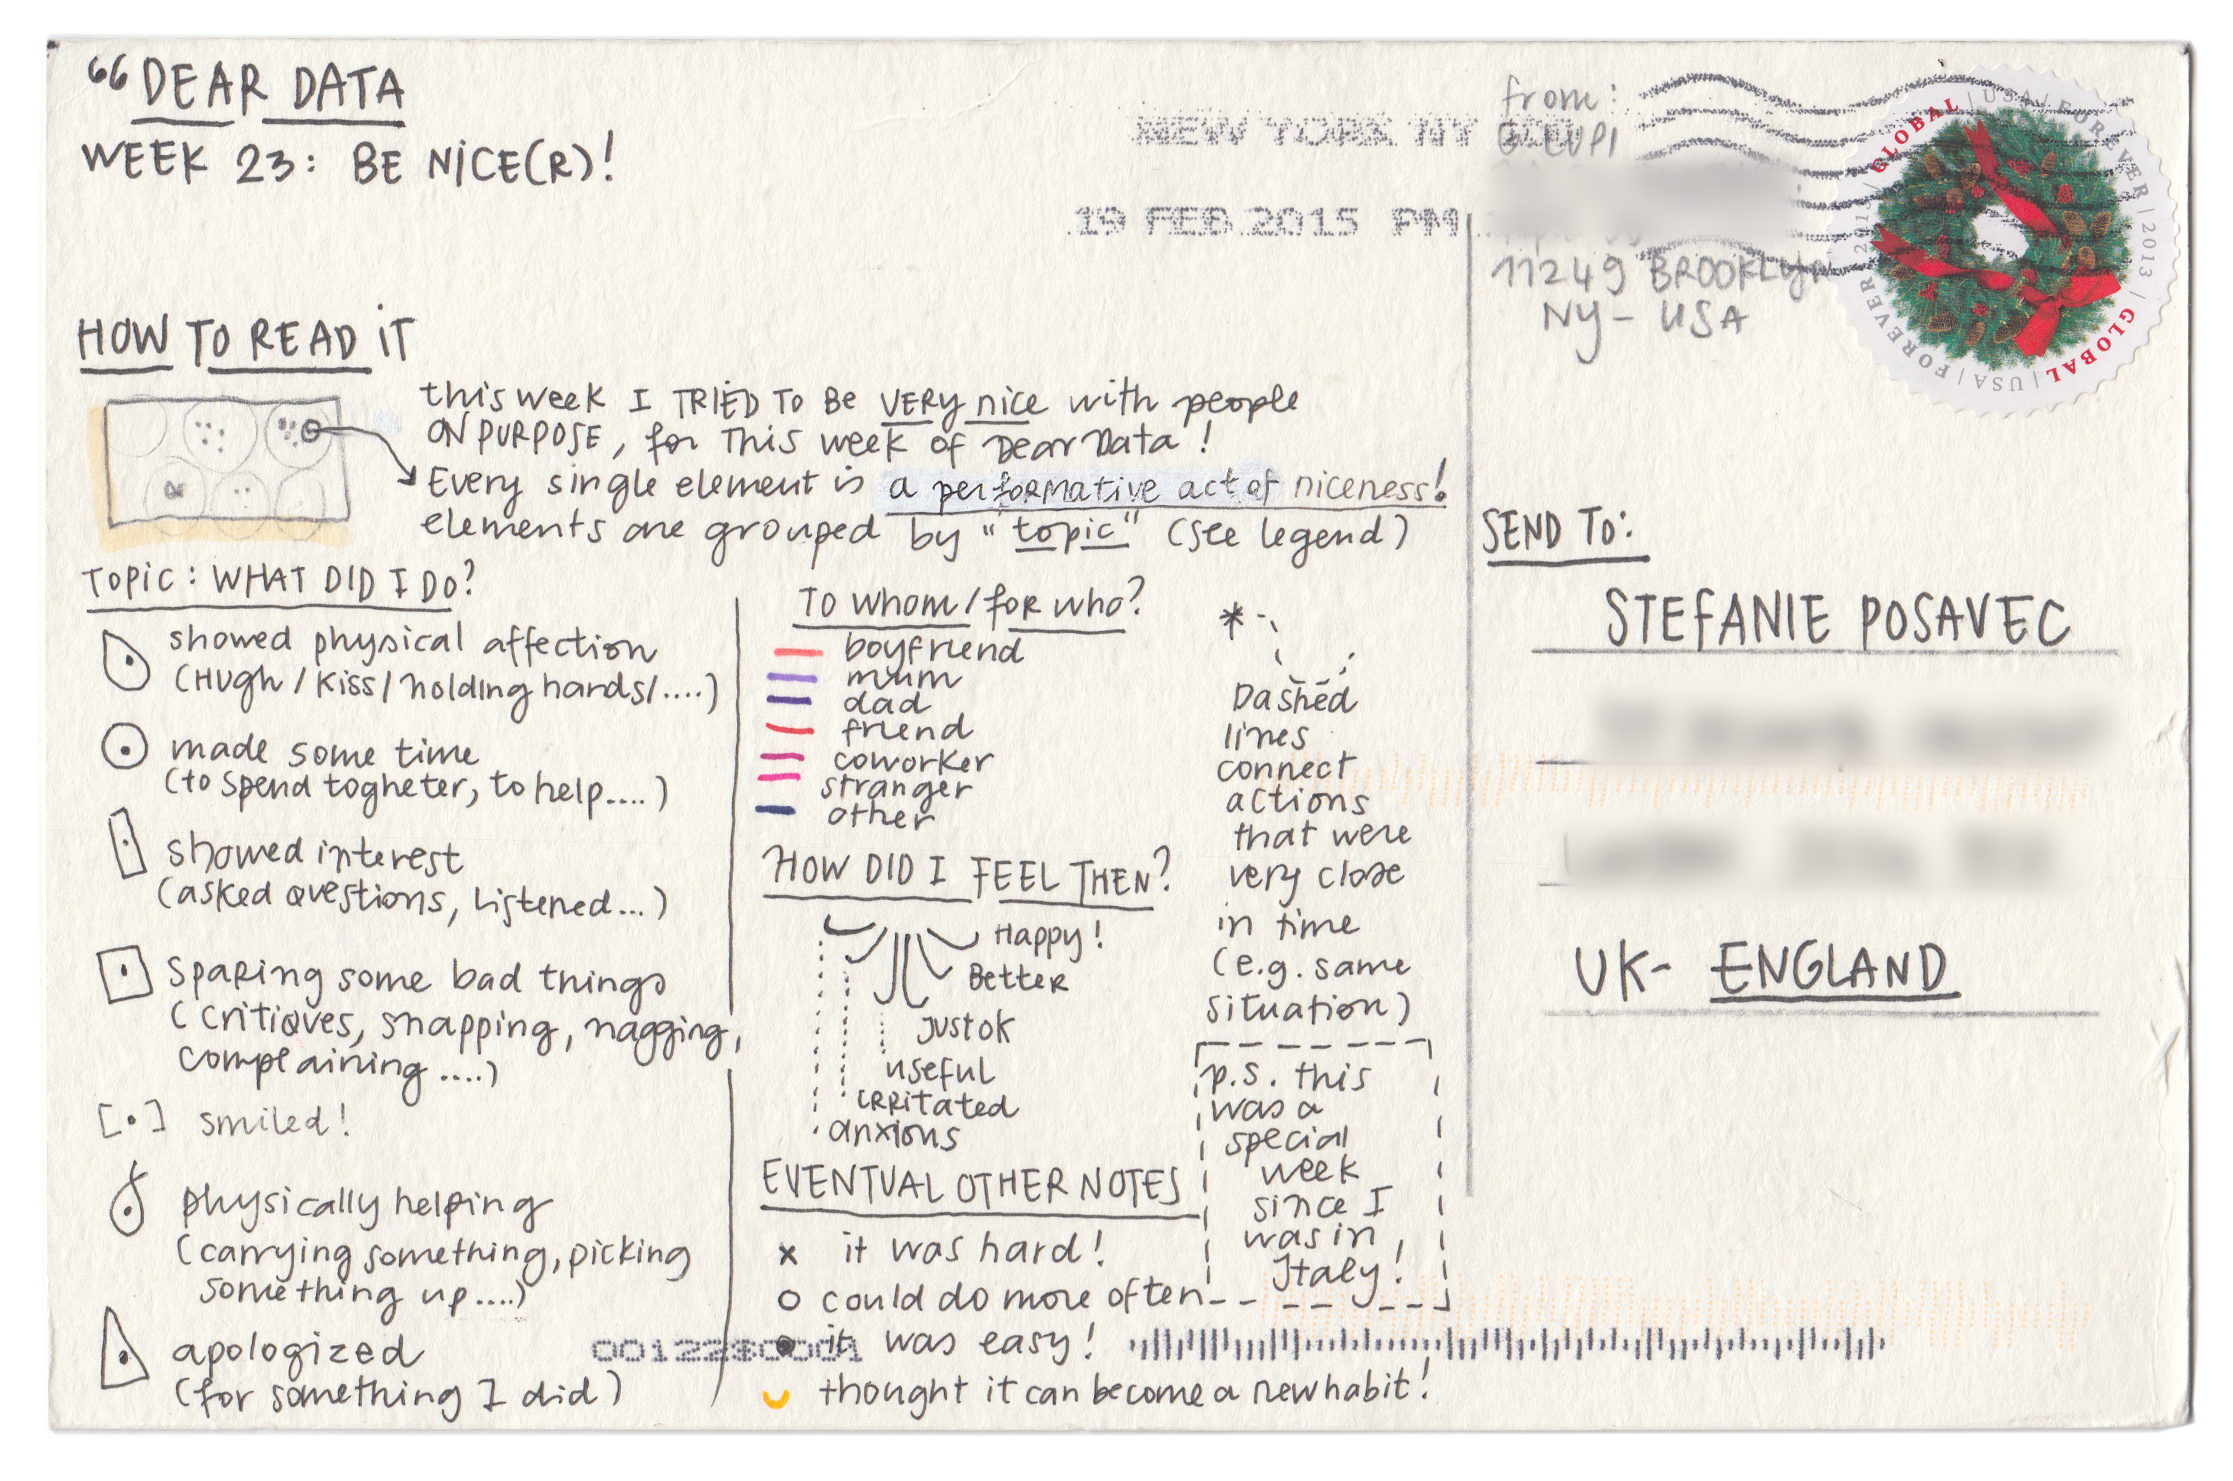 “DEAR DATA
WEEK 23: BE NICE(R)!
NEW YORK NY
19 FEB 2015 PM
from:
G. LUPI
11249 BROOKLYN
NY - USA
GLOBAL | USA | FOREVER | 2013 / GLOBAL | USA | FOREVER 2013 /
HOW TO READ IT
this week I TRIED TO BE VERY nice with people
ON PURPOSE, for This week of Dear Data!
Every single element is a performative act of niceness!
elements are grouped by "topic" (see legend)
TOPIC: WHAT DID I DO?
showed physical affection
(Hugh / Kiss / holding hands/....)
made some time
(to spend togheter, to help....)
showed interest
(asked questions, listened...)
sparing some bad things
(critiques, snapping, nagging,
complaining ....)
[•] smiled!
physically helping
(carrying something, picking
something up....)
apologized
(for something I did)
To whom / for who?
boyfriend
mum
dad
friend
coworker
stranger
other
HOW DID I FEEL THEN?
Happy!
Better
Just ok
useful
irritated
anxious
EVENTUAL OTHER NOTES
x it was hard!
o could do more often
● it was easy!
thought it can become a new habit!
0012230001
*
Dashed
lines
connect
actions
that were
very close
in time
(e.g. same
situation)
p.s. this
was a
special
week
since I
was in
Italy!
SEND TO:
STEFANIE POSAVEC
UK - ENGLAND